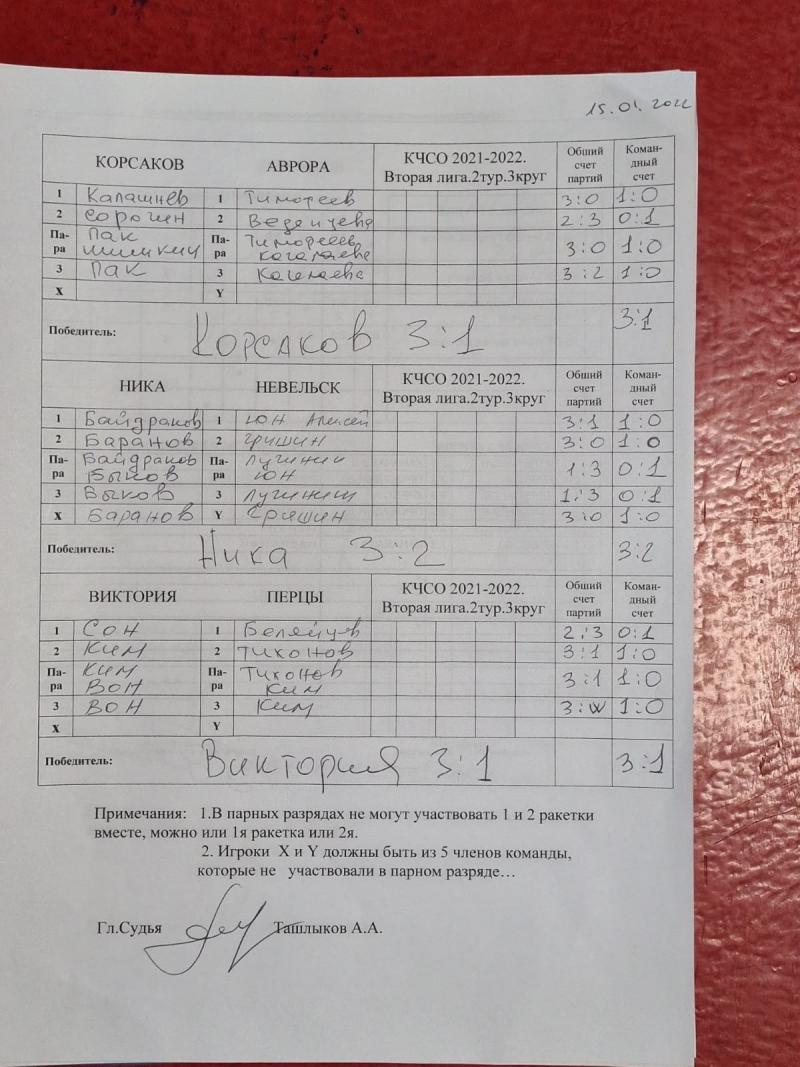 15.01.2022
КОРСАКОВ АВРОРА КЧСО 2021-2022. Вторая лига.2тур.3круг Общий счет партий Коман-дный счет
1 Калашнев 1 Тимофеев 3:0 1:0
2 Сорочин 2 3:3 0:1
Па-ра Пак Шишкин Па-ра Тимофеев 3:0 1:0
3 Пак 3 3:2 1:0
X Y
Победитель: Корсаков 3:1 3:1
НИКА НЕВЕЛЬСК КЧСО 2021-2022. Вторая лига.2тур.3круг Общий счет партий Коман-дный счет
1 Байдраков 1 Юн Алексей 3:1 1:0
2 Баранов 2 Гришин 3:0 1:0
Па-ра Байдраков Быков Па-ра Юн 1:3 0:1
3 Быков 3 1:3 0:1
X Баранов Y Гришин 3:0 1:0
Победитель: Ника 3:2 3:2
ВИКТОРИЯ ПЕРЦЫ КЧСО 2021-2022. Вторая лига.2тур.3круг Общий счет партий Коман-дный счет
1 Сон 1 2:3 0:1
2 Ким 2 Тихонов 3:1 1:0
Па-ра Ким Вон Па-ра Тихонов Ким 3:1 1:0
3 Вон 3 Ким 3:W 1:0
X Y
Победитель: Виктория 3:1 3:1
Примечания: 1.В парных разрядах не могут участвовать 1 и 2 ракетки
вместе, можно или 1я ракетка или 2я.
2. Игроки X и Y должны быть из 5 членов команды,
которые не участвовали в парном разряде…
Гл.Судья Ташлыков А.А.